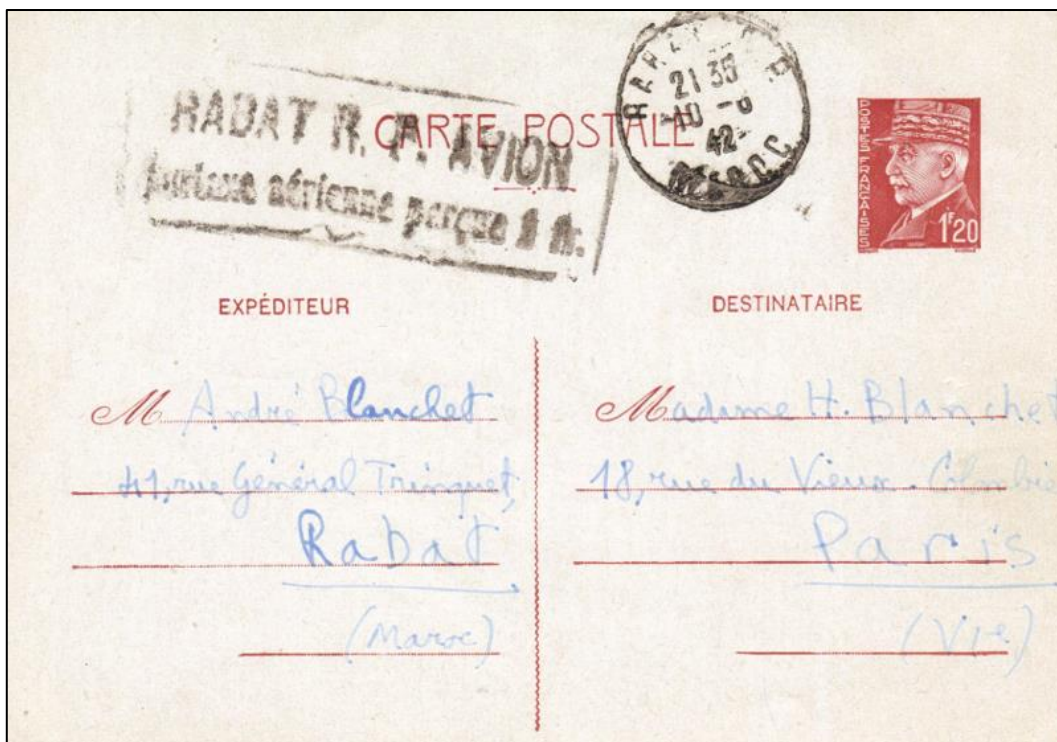 RABAT R. P. AVION
surtaxe aérienne perçue 1 fr.
CARTE POSTALE
RABAT R.P.
21 35
10 -8
42
MAROC
POSTES FRANÇAISES
1F20
EXPÉDITEUR
M André Blanchet
41, rue Général Trinquet,
Rabat
(Maroc)
DESTINATAIRE
Madame H. Blanchet
18, rue du Vieux-Colombie
Paris
(VIe)